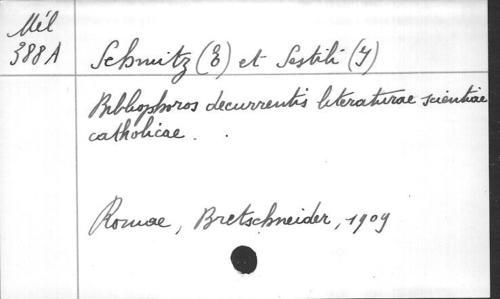 Mél
388A
Schmitz (E) et Sestili (J)
Bibliophoros decurrentis literaturae scientiae
catholicae.
Romae, Bretschneider, 1909